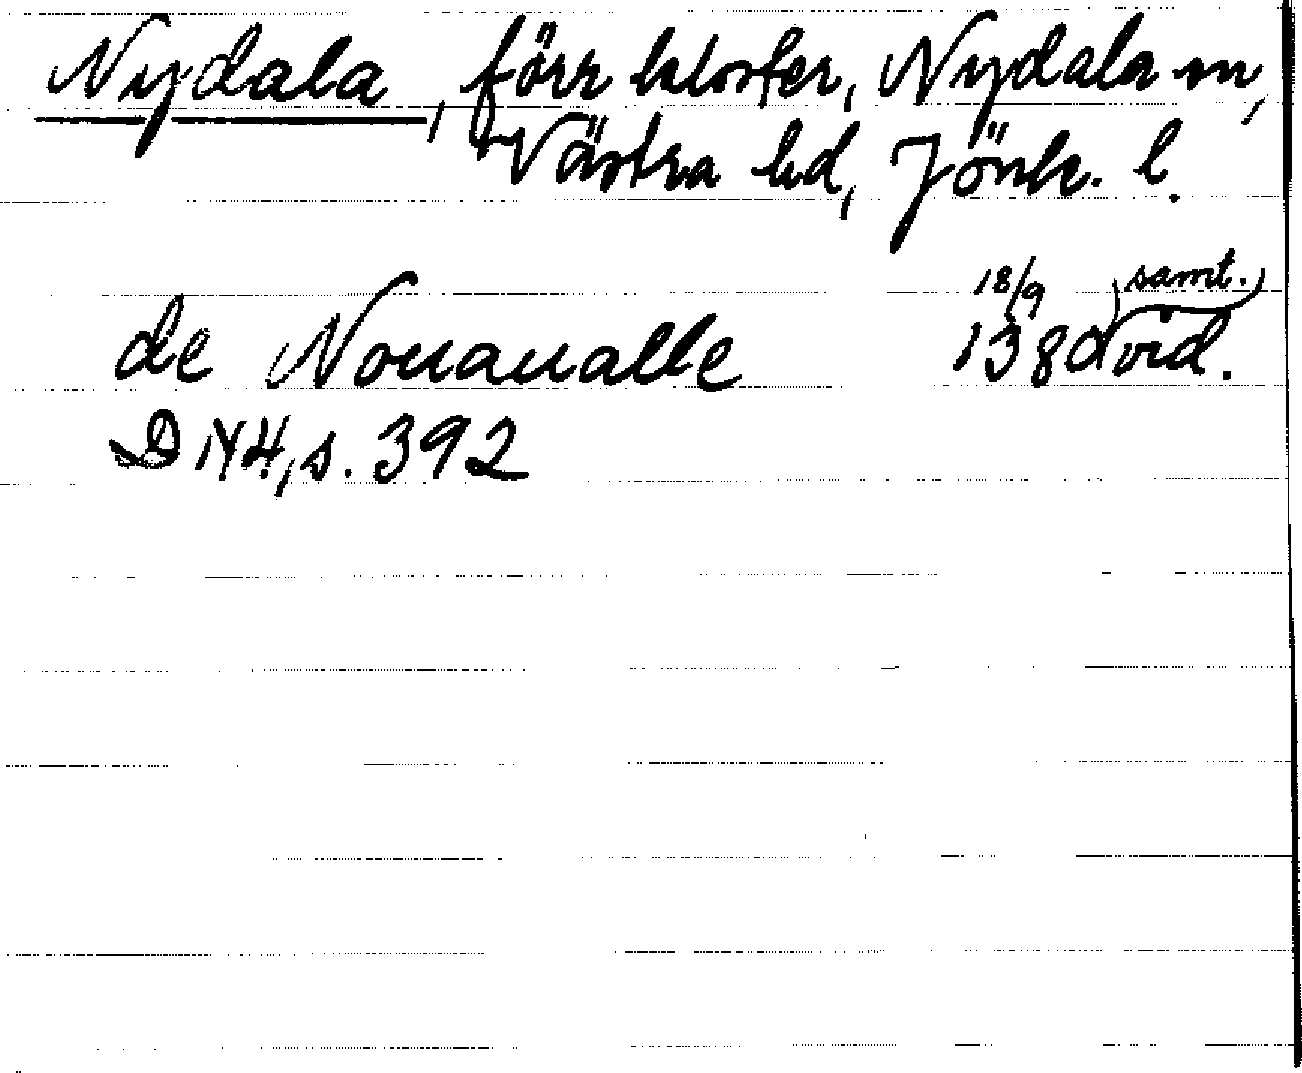 Nydala, förr kloster, Nydala sn,
Västra hd, Jönk. l.
de Nouaualle 18/9 1380 (samt.) vid.
DN 4, s. 392